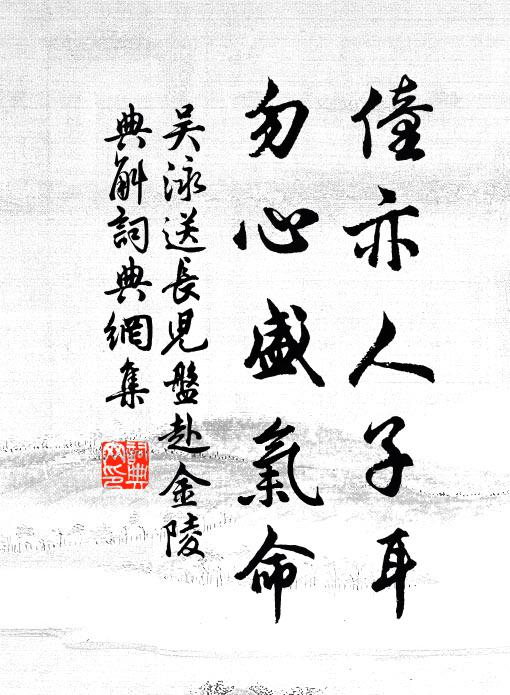 僮亦人子耳
勿心盛氣命
吴泳送長児盤赴金陵
典斛詞典網集
詞典